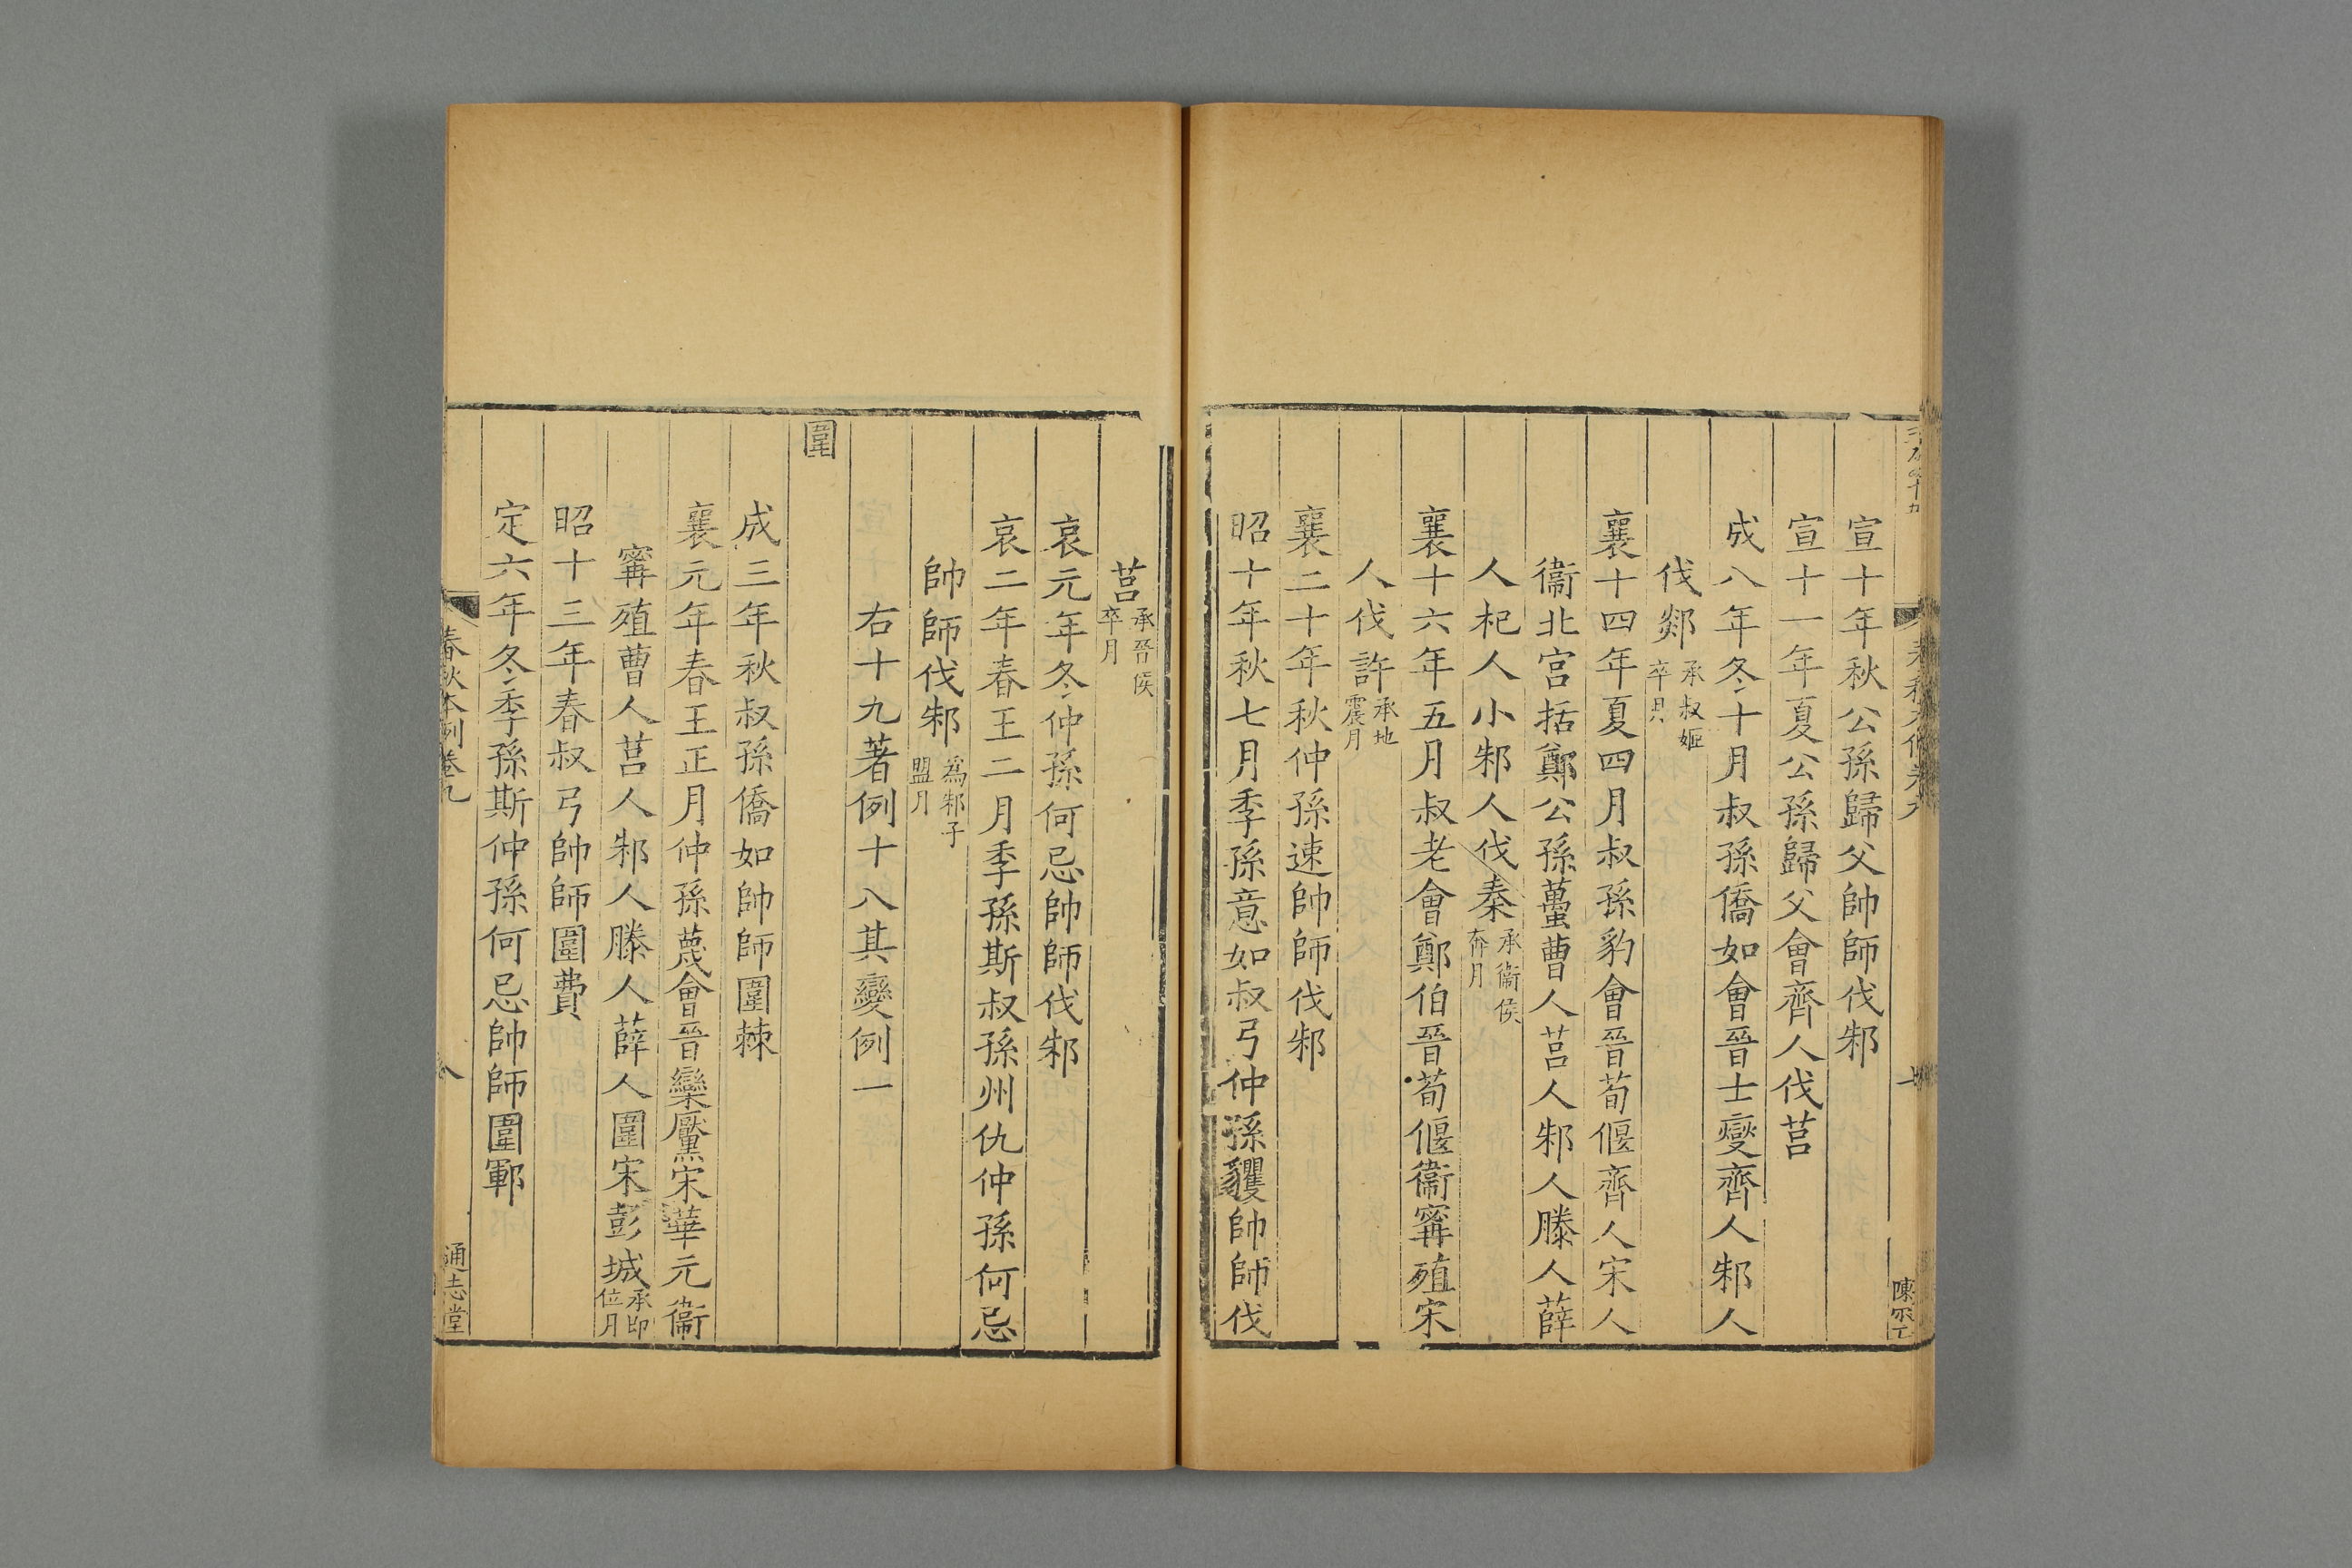 宣十年秋公孫歸父帥師伐邾
宣十一年夏公孫歸父會齊人伐莒
成八年冬十月叔孫僑如會晉士燮齊人邾人
伐郯承叔姬卒月
襄十四年夏四月叔孫豹會晉荀偃齊人宋人
衞北宮括鄭公孫蠆曹人莒人邾人滕人薛
人杞人小邾人伐秦承衞侯奔月
襄十六年五月叔老會鄭伯晉荀偃衞甯殖宋
人伐許承地震月
襄二十年秋仲孫速帥師伐邾
昭十年秋七月季孫意如叔弓仲孫貜帥師伐
莒承晉侯卒月
哀元年冬仲孫何忌帥師伐邾
哀二年春王二月季孫斯叔孫州仇仲孫何忌
帥師伐邾為邾子盟月
右十九著例十八其變例一
圍
成三年秋叔孫僑如帥師圍棘
襄元年春王正月仲孫蔑會晉欒黶宋華元衞
甯殖曹人莒人邾人滕人薛人圍宋彭城承即位月
昭十三年春叔弓帥師圍費
定六年冬季孫斯仲孫何忌帥師圍鄆
春秋本例卷九
八
通志堂